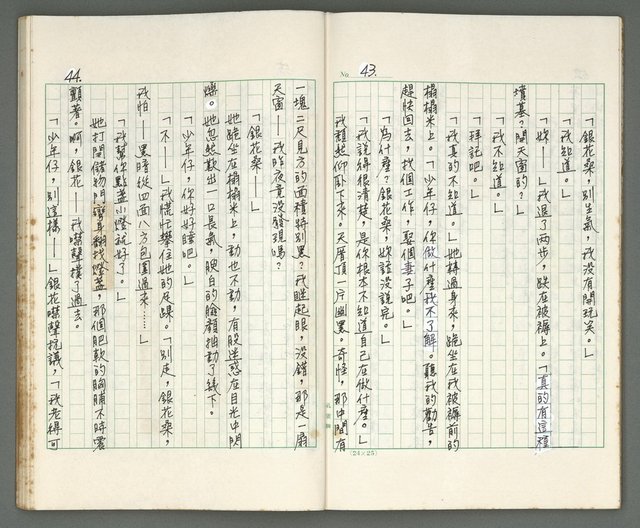 No. 43.
「銀花桑,別生氣,我沒有開玩笑。」
「我不知道。」
「妳——」我退了兩步,跌在被褥上。「真的有這種
墳墓?開天窗的?」
「我不知道。」
「拜託吧。」
「我真的不知道。」她轉過身來,跪坐在我被褥前的
榻榻米上。「少年仔,你做什麼我不了解。聽我的勸告,
趕快回去,找個工作,娶個妻子吧。」
「為什麼?銀花桑,妳話沒說完。」
「我說得很清楚,是你根本不知道自己在做什麼。」
我頹然仰臥下來。天厝頂一片幽黑。奇怪,那中間有
(24×25)
44.
一塊二尺見方的面積特別黑?我瞇起眼,沒錯,那是一扇
天窗——我昨夜竟沒發現嗎?
「銀花桑——」
她跪坐在榻榻米上,動也不動,有股迷惑在目光中閃
爍。她忽然歎出一口長氣,腴白的臉顏抽動了幾下。
「少年仔,你好好睡吧。」
「不——」我慌忙攀住她的足踝。「別走,銀花桑,
我怕——黑暗從四面八方包圍過來……」
「我幫你點盞小燈就好了。」
她打開儲物門彎身翻找燈盞,那個肥軟的胸脯不時震
顫著。啊,銀花——我噤聲撲了過去。
「少年仔,別這樣——」銀花噤聲抗議,「我老得可